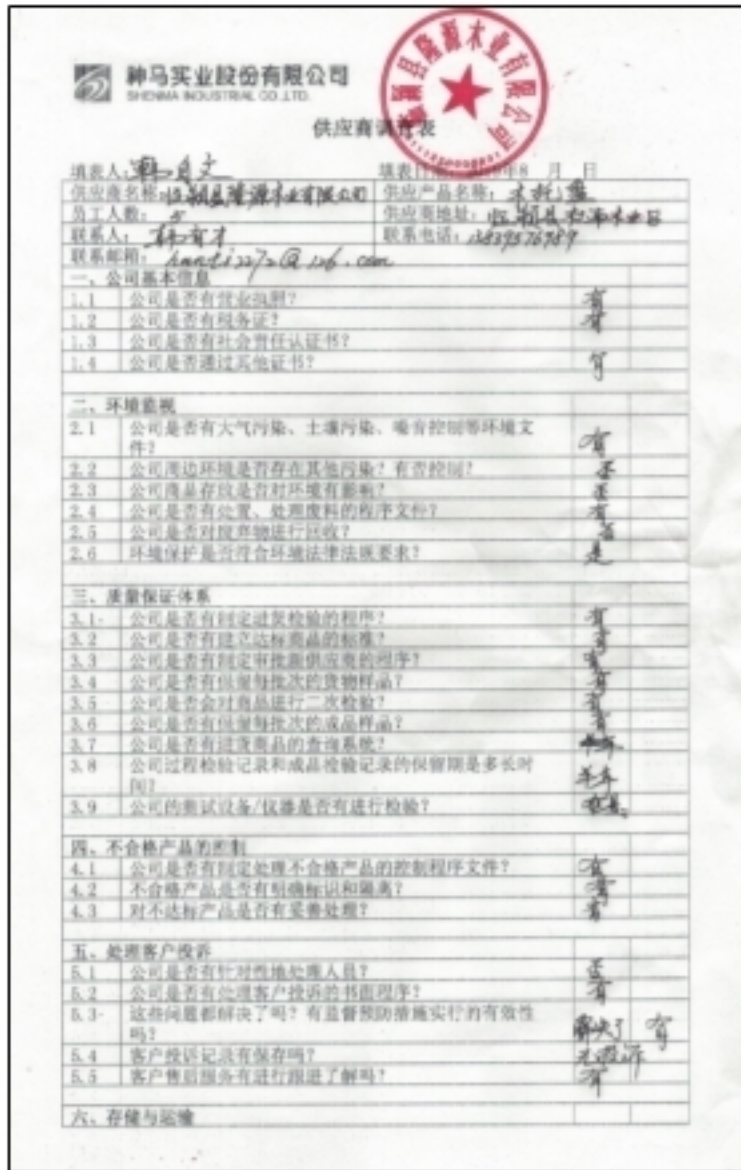 神马实业股份有限公司
SHENMA INDUSTRIAL CO.,LTD.
隆源木业有限公司
供应商调查表
填表人: 填表日期: 年8 月 日
供应商名称: 颍县隆源木业有限公司 供应产品名称: 木托盘
员工人数: 供应商地址:
联系人: 联系电话: 13839576989
联系邮箱: @126.com
一、公司基本信息
1.1 公司是否有营业执照? 有
1.2 公司是否有税务证? 有
1.3 公司是否有社会责任认证书?
1.4 公司是否通过其他证书? 有
二、环境监视
2.1 公司是否有大气污染、土壤污染、噪音控制等环境文
件? 有
2.2 公司周边环境是否存在其他污染?有否控制? 否
2.3 公司商品存放是否对环境有影响? 否
2.4 公司是否有处置、处理废料的程序文件? 有
2.5 公司是否对废弃物进行回收? 否
2.6 环境保护是否符合环境法律法规要求? 是
三、质量保证体系
3.1 公司是否有制定进货检验的程序? 有
3.2 公司是否有建立达标商品的标准? 有
3.3 公司是否有制定审批新供应商的程序? 有
3.4 公司是否有保留每批次的货物样品? 有
3.5 公司是否会对商品进行二次检验? 有
3.6 公司是否有保留每批次的成品样品? 有
3.7 公司是否有进货商品的查询系统?
3.8 公司过程检验记录和成品检验记录的保留期是多长时
间? 半年
3.9 公司的测试设备/仪器是否有进行检验?
四、不合格产品的控制
4.1 公司是否有制定处理不合格产品的控制程序文件? 有
4.2 不合格产品是否有明确标识和隔离? 有
4.3 对不达标产品是否有妥善处理? 有
五、处理客户投诉
5.1 公司是否有针对性地处理人员? 是
5.2 公司是否有处理客户投诉的书面程序? 有
5.3 这些问题都解决了吗?有监督预防措施实行的有效性
吗? 解决了 有
5.4 客户投诉记录有保存吗? 无投诉
5.5 客户售后服务有进行跟进了解吗? 有
六、存储与运输